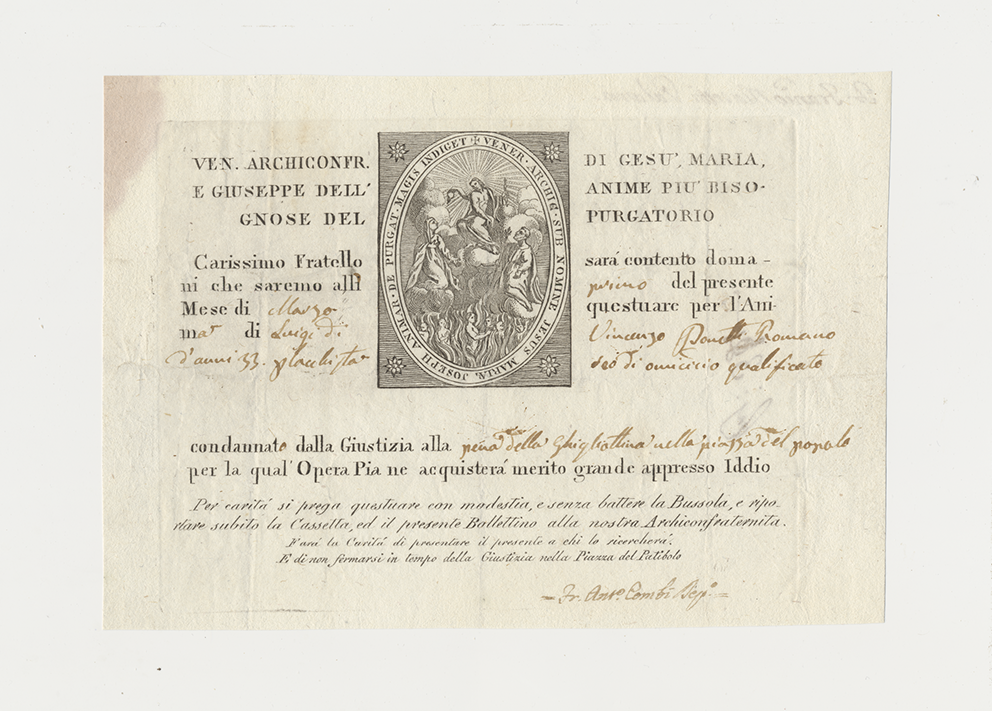 VEN. ARCHICONFR. DI GESU', MARIA,
E GIUSEPPE DELL' ANIME PIU' BISO-
GNOSE DEL PURGATORIO
ANIMAR · DE PURGAT · MAGIS INDIGET ✝ VENER · ARCHIC · SUB NOMINE JESUS MARIÆ, JOSEPH
Carissimo Fratello sará contento doma-
ni che saremo alli primo del presente
Mese di Marzo questuare per l'Ani-
ma di Luigi di Vincenzo Romano
d'anni 33. reo di omicicio qualificato
condannato dalla Giustizia alla pena della Ghigliottina nella piazza del popolo
per la qual' Opera Pia ne acquisterá merito grande appresso Iddio
Per caritá si prega questuare con modestia, e senza battere la Bussola, e ripo-
rtare subito la Cassetta, ed il presente Bollettino alla nostra Archiconfraternita.
Fará la Caritá di presentare il presente a chi lo ricercherá.
E di non fermarsi in tempo della Giustizia nella Piazza del Patibolo
Fr. Ant.o Combi